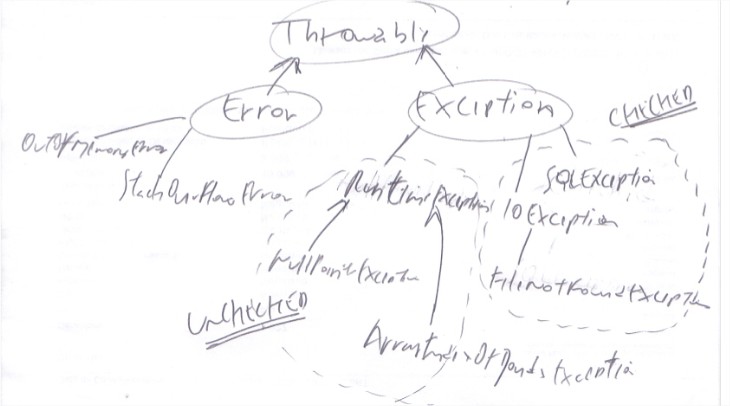 Throwable
Error
Exception
CHECHED
OutOfMemoryError
StackOverFlowError
RuntimeException
SQLException
IOException
NullPointException
FileNotFoundException
UNCHECHED
ArrayIndexOfBoundsException